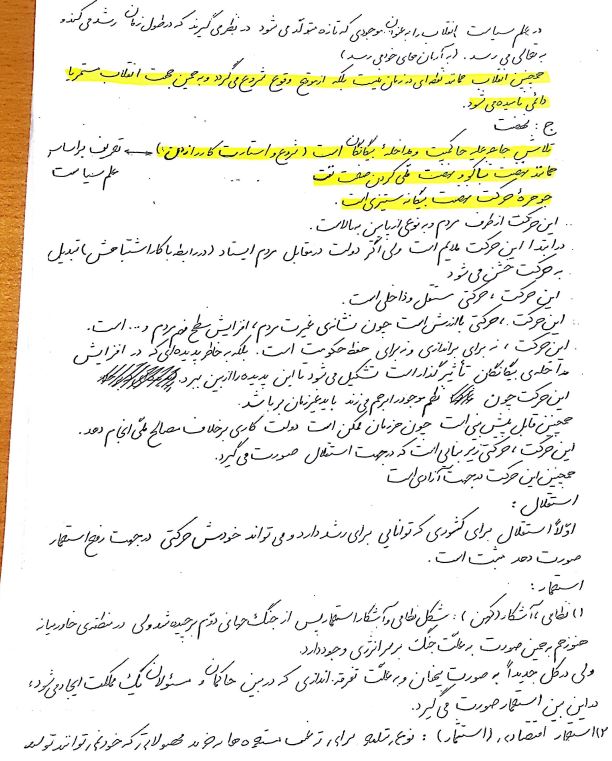 در علم سیاست انقلاب را به عنوان موجودی که تازه متولد می شود در نظر می گیرند که در طول زمان رشد می کند و
به تعالی می رسد. (به آرمان های خود می رسد)
همچنین انقلاب همانند نقطه ای در زمان نیست بلکه از موقع وقوع شروع می گردد و به همین جهت انقلاب مستمر یا
دائمی نامیده می شود.
ج: نهضت
تلاش جامعه علیه حاکمیت و مداخلهٔ بیگانگان است (شروع و استارت کار از ملت) ← تعریف بر اساس
علم سیاست
همانند نهضت تنباکو و نهضت ملی کردن صنعت نفت
جوهرهٔ حرکت نهضت بیگانه ستیزی است.
این حرکت از طرف مردم و به نوعی از پایین به بالاست.
در ابتدا این حرکت ملایم است ولی اگر دولت در مقابل مردم ایستاد (در رابطه با کار اشتباهش) تبدیل
به حرکت خشن می شود
این حرکت، حرکتی مستقل و داخلی است.
این حرکت، حرکتی با ارزش است چون نشانهٔ غیرت مردم، افزایش سطح فهم مردم و... است.
این حرکت، نه برای براندازی و نه برای حفظ حکومت است. بلکه به خاطر پدیده ای که در افزایش
مداخلهٔ بیگانگان تأثیرگذار است تشکیل می شود تا این پدیده را از بین ببرد
این حرکت چون نظم موجود را بر هم می زند باید غیر زمان بر باشد.
همچنین قابل پیش بینی است چون هر زمان ممکن است دولت کاری برخلاف مصالح ملی انجام دهد.
این حرکت، حرکتی زیربنایی است که در جهت استقلال صورت می گیرد.
همچنین این حرکت در جهت آزادی است
استقلال:
اولاً استقلال برای کشوری که توانایی برای رشد دارد و می تواند خودش حرکتی در جهت رفع استعمار
صورت دهد مثبت است.
استعمار:
۱) نظامی، آشکار (کهن): شکل نظامی و آشکار استعمار پس از جنگ جهانی دوم برچیده شد ولی در منطقه ی خاورمیانه
هنوز هم به همین صورت به علت جنگ بر سر انرژی وجود دارد
ولی در کل جدیداً به صورت پنهان و به علت تفرقه اندازی که در بین حاکمان و مسئولان یک مملکت ایجاد می شود،
در این بین استعمار صورت می گیرد.
۲) استعمار اقتصادی (استثمار): نوعی برای خرید محصولاتی که خود نمی توانند تولید